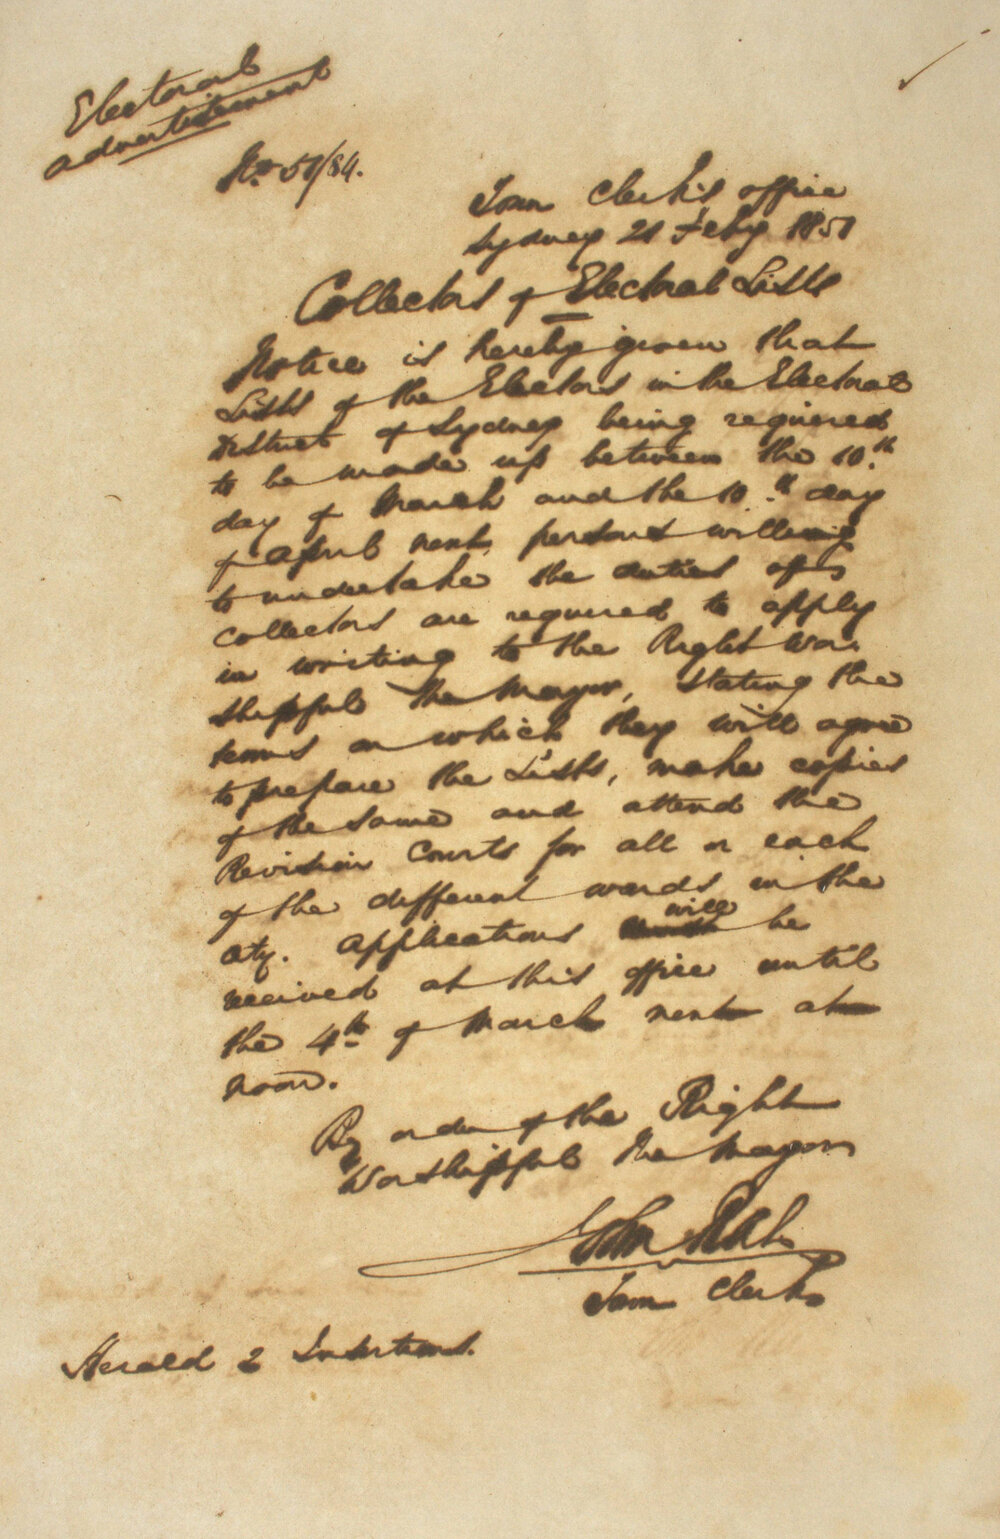 Electoral
advertisement
No. 51/84.
Town Clerk's office
Sydney 21 Feby 1851
Collectors of Electoral Lists
Notice is hereby given that
Lists of the Electors in the Electoral
District of Sydney being required
to be made up between the 10.th
day of March and the 10.th day
of april next, persons willing
to undertake the duties of
collectors are required to apply
in writing to the Right Wor
shipful the Mayor, stating the
terms on which they will agree
to prepare the Lists, make copies
of the same and attend the
Revision Courts for all or each
of the different wards in the
city. applications will be
received at this office until
the 4th of March next at
noon.
By order of the Right
Worshipful the Mayor
John
Town Clerk
Herald 2 Insertions.